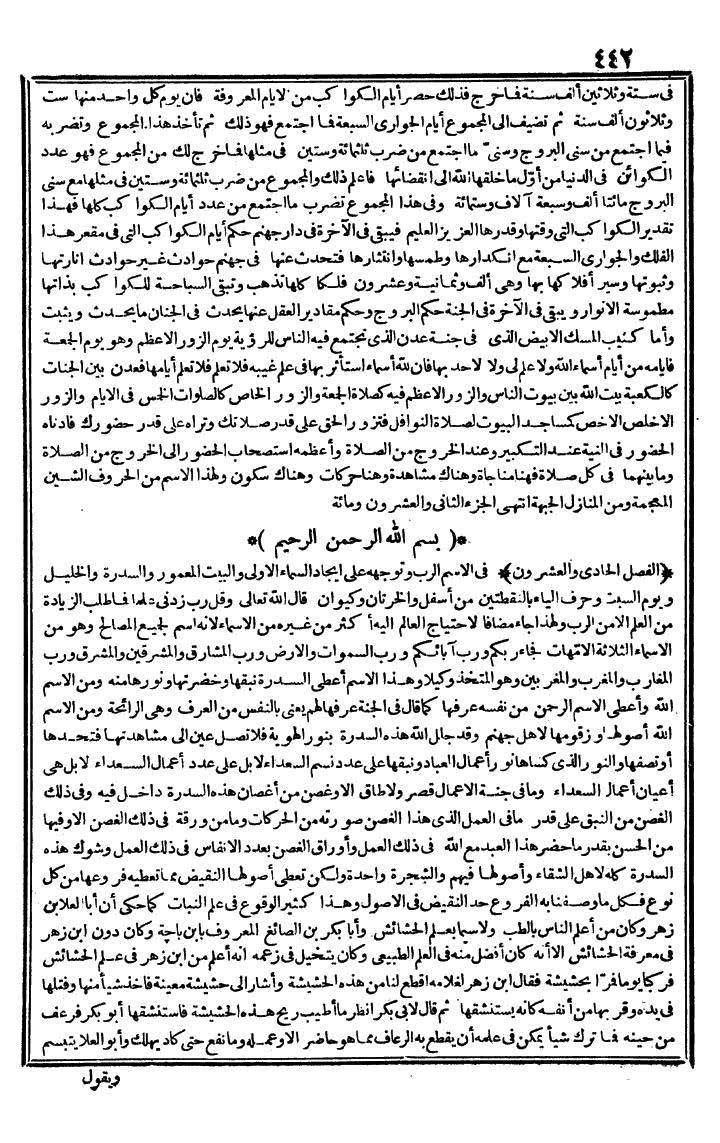 ٤٤٢
فى ستة وثلاثين ألف سنة فما خرج فذلك حصر أيام الكواكب من الايام المعروفة فان يوم كل واحد منها ست
وثلاثون ألف سنة ثم تضيف الى المجموع أيام الجوارى السبعة فما اجتمع فهو ذلك ثم تأخذ هذا المجموع وتضربه
فيما اجتمع من سنى البروج وسنىّ ما اجتمع من ضرب ثلثمائة وستين فى مثلها فما خرج لك من المجموع فهو عدد
الكوائن فى الدنيا من أوّل ما خلقها الله الى انقضائها فاعلم ذلك والمجموع من ضرب ثلثمائة وستين فى مثلها مع سنى
البروج مائتا ألف وسبعة آلاف وستمائة وفى هذا المجموع تضرب ما اجتمع من عدد أيام الكواكب كلها فهذا
تقدير الكواكب التى وقتها وقدرها العزيز العليم فيبقى فى الآخرة فى دار جهنم حكم أيام الكواكب التى فى مقعر هذا
الفلك والجوارى السبعة مع انكدارها وطمسها وانتثارها فتحدث عنها فى جهنم حوادث غير حوادث انارتها
وثبوتها وسير أفلاكها بها وهى ألف وثمانية وعشرون فلكا كلها تذهب وتبقى السباحة للكواكب بذاتها
مطموسة الانوار ويبقى فى الآخرة فى الجنة حكم البروج وحكم مقادير العقل عنها يحدث فى الجنان ما يحدث ويثبت
وأما كثيب المسك الابيض الذى فى جنة عدن الذى تجتمع فيه الناس للرؤية يوم الزور الاعظم وهو يوم الجمعة
فايامه من أيام أسماء الله ولا علم لى ولا لاحد بها فان لله أسماء استأثر بها فى علم غيبه فلا تعلم فلا تعلم أيامها فعدن بين الجنات
كالكعبة بيت الله بين بيوت الناس والزور الاعظم فيه كصلاة الجمعة والزور الخاص كالصلوات الخمس فى الايام والزور
الاخلص الاخص كمساجد البيوت لصلاة النوافل فتزور الحق على قدر صلاتك وتراه على قدر حضورك فادناه
الحضور فى النية عند التكبير وعند الخروج من الصلاة وأعظمه استصحاب الحضور الى الخروج من الصلاة
وما بينهما فى كل صلاة فهنا مناجاة وهناك مشاهدة وهنا حركات وهناك سكون ولهذا الاسم من الحروف الشين
المعجمة ومن المنازل الجبهة انتهى الجزء الثانى والعشرون ومائة
*( بسم الله الرحمن الرحيم )*
﴿الفصل الحادى والعشرون﴾ فى الاسم الرب وتوجهه على ايجاد السماء الاولى والبيت المعمور والسدرة والخليل
ويوم السبت وحرف الياء بالنقطتين من أسفل والخرتان وكيوان قال الله تعالى وقل رب زدنى علما فما طلب الزيادة
من العلم الا من الرب ولهذا جاء مضافا لاحتياج العالم اليه أكثر من غيره من الاسماء لانه اسم لجميع المصالح وهو من
الاسماء الثلاثة الامهات فجاء ربكم ورب آبائكم ورب السموات والارض ورب المشارق والمشرقين والمشرق ورب
المغارب والمغرب والمغربين وهو المتخذ وكيلا وهذا الاسم أعطى السدرة نبقها وخضرتها ونورها منه ومن الاسم
الله وأعطى الاسم الرحمن من نفسه عرفها كما قال فى الجنة عرفها لهم يعنى بالنفس من العرف وهى الرائحة ومن الاسم
الله أصولها وزقومها لاهل جهنم وقد جلل الله هذه السدرة بنور الهوية فلا تصل عين الى مشاهدتها فتحدها
أو تصفها والنور الذى كساها نور أعمال العباد ونبقها على عدد نسم السعداء لا بل على عدد أعمال السعداء لا بل هى
أعيان أعمال السعداء وما فى جنة الاعمال قصر ولا طاق الا وغصن من أغصان هذه السدرة داخل فيه وفى ذلك
الغصن من النبق على قدر ما فى العمل الذى هذا الغصن صورته من الحركات وما من ورقة فى ذلك الغصن الا وفيها
من الحسن بقدر ما حضر هذا العبد مع الله فى ذلك العمل وأوراق الغصن بعدد الانفاس فى ذلك العمل وشوك هذه
السدرة كله لاهل الشقاء وأصولها فيهم والشجرة واحدة ولكن تعطى أصولها النقيض مما تعطيه فروعها من كل
نوع فكل ما وصفنا به الفروع خذ النقيض فى الاصول وهذا كثير الوقوع فى علم النبات كما حكى أن أبا العلا بن
زهر وكان من أعلم الناس بالطب ولا سيما بعلم الحشائش وأبا بكر بن الصائغ المعروف بابن باجة وكان دون ابن زهر
فى معرفة الحشائش الا أنه كان أفضل منه فى العلم الطبيعى وكان يتخيل فى زعمه انه أعلم من ابن زهر فى علم الحشائش
فركبا يوما فمرّا بحشيشة فقال ابن زهر لغلامه اقطع لنا من هذه الحشيشة وأشار الى حشيشة معينة فاخذ شيأ منها وفتلها
فى يده وقربها من أنفه كانه يستنشقها ثم قال لابى بكر انظر ما أطيب ريح هذه الحشيشة فاستنشقها أبو بكر فرعف
من حينه فما ترك شيأ يمكن فى علمه أن يقطع به الرعاف مما هو حاضر الا وعمله وما نفع حتى كاد يهلك وأبو العلا يتبسم
ويقول